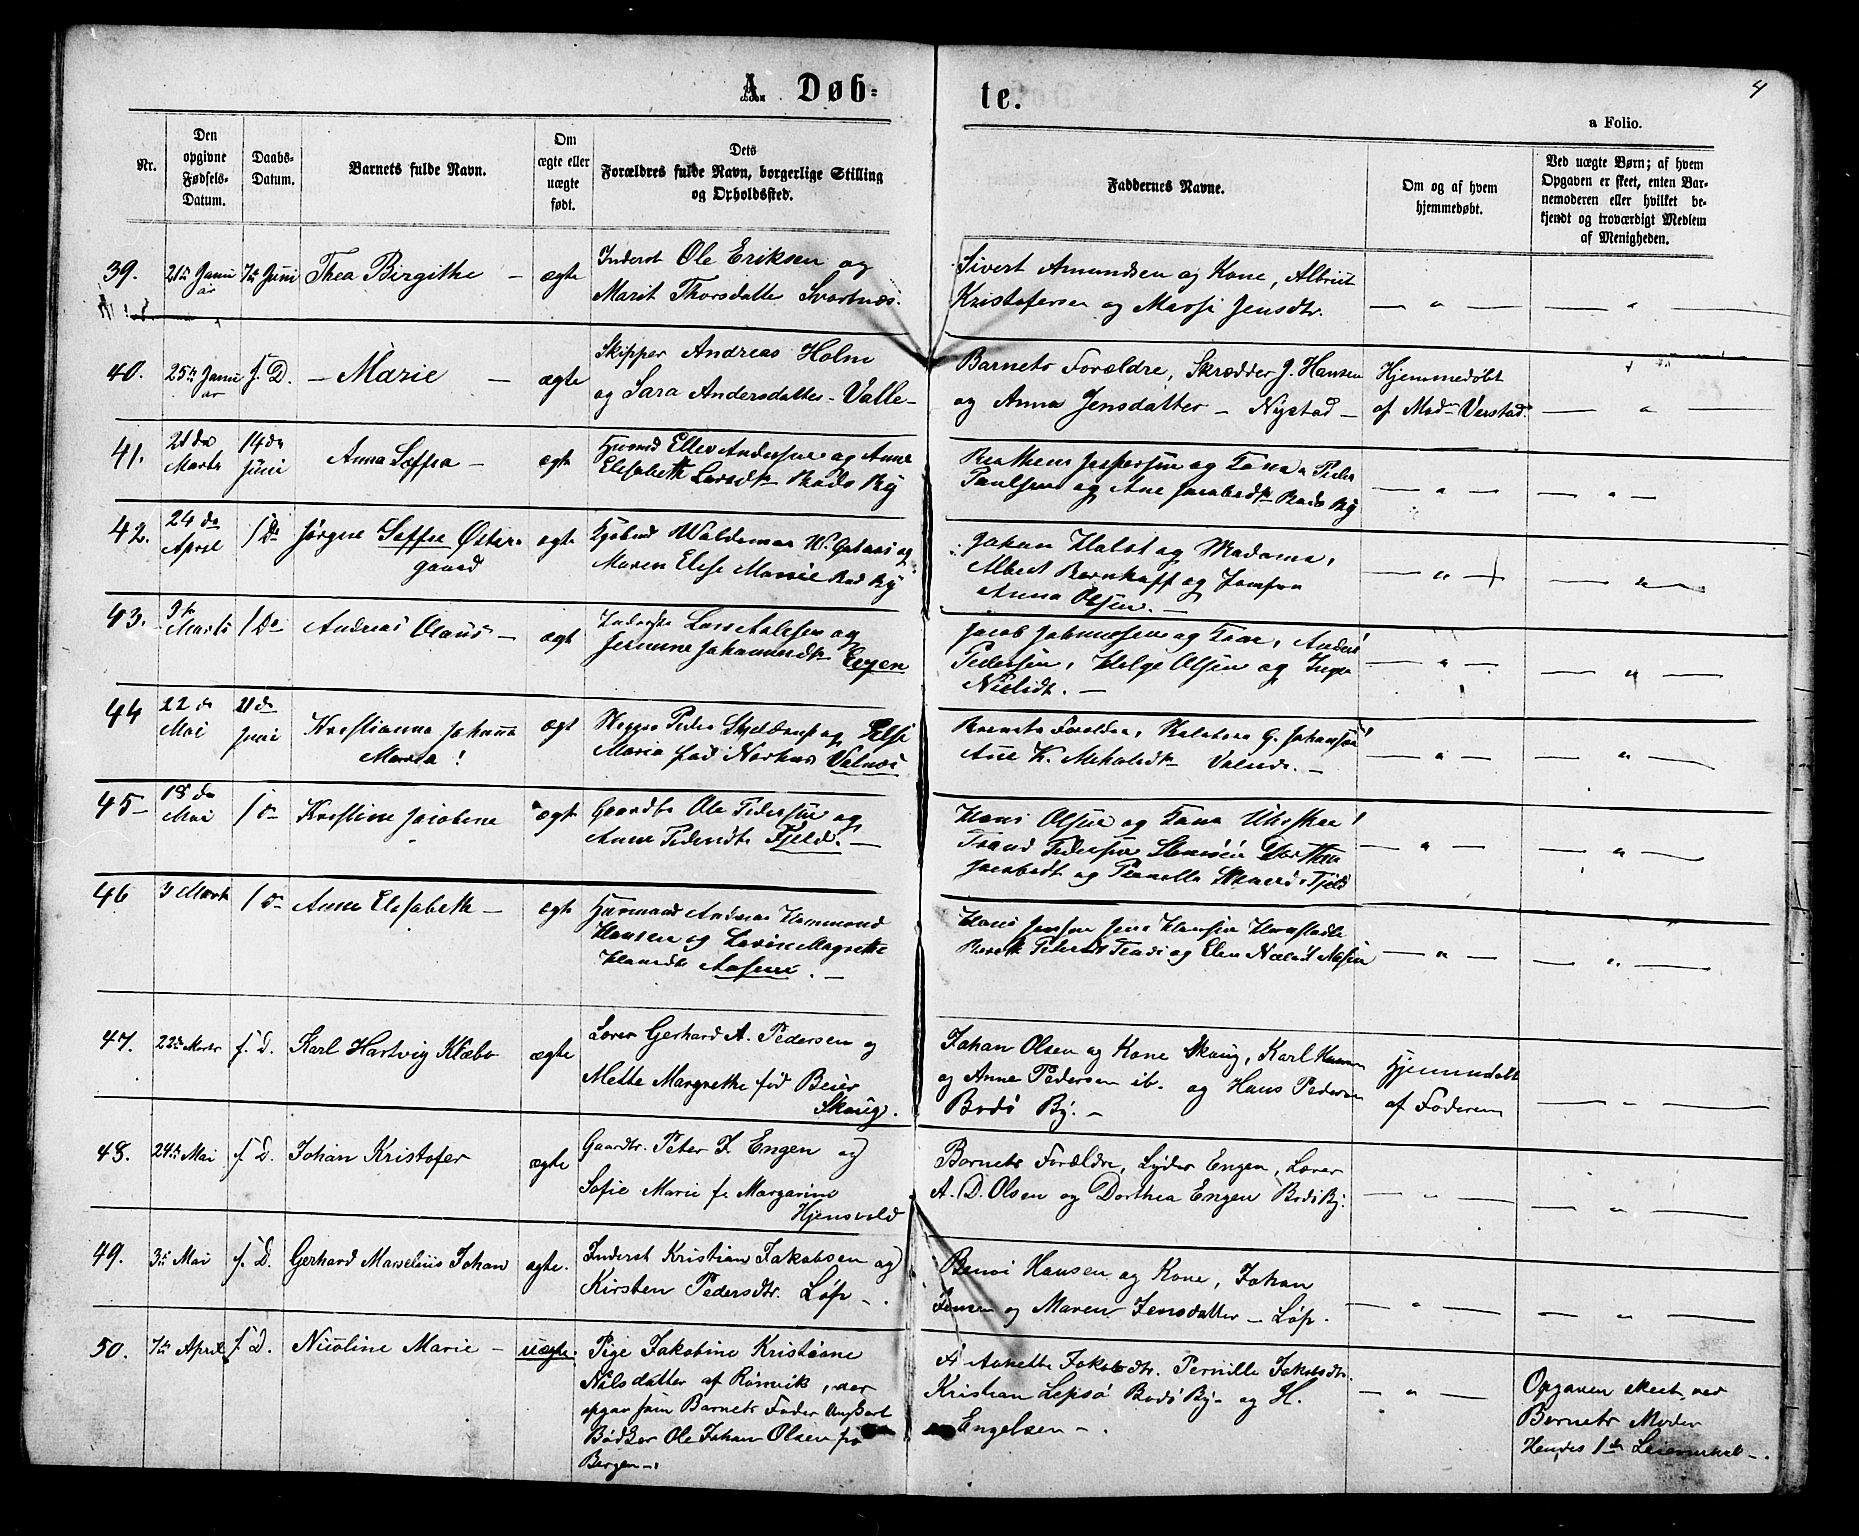 A. Døb-
te.
4
a Folio.
Nr.
Den opgivne Fødsels-Datum.
Daabs-Datum.
Barnets fulde Navn.
Om ægte eller uægte født.
Dets
Forældres fulde Navn, borgerlige Stilling
og Opholdssted.
Faddernes Navne.
Om og af hvem
hjemmedøbt.
Ved uægte Børn; af hvem
Opgaven er skeet, enten Bar-
nemoderen eller hvilket be-
kjendt og troværdigt Medlem
af Menigheden.
39. 21de Janu 7de Juni Thea Birgithe – ægte
ar
Inderst Ole Eriksen og
Marit Thorsdatte Svartnæs.
Sivert Amundsen og Kone, Albrigt
Kristofersen og Massi Jensdtr.
40. 25de Janu f. D. – Marie – ægte
ar
Skipper Andreas Holm
og Sara Andersdatter – Valle –
Barnets Forældre, Skrædder J. Hansen
og Anna Jensdatter – Nystad –
Hjemmedøbt
af Mad. Verstad.
41. 21de Marts 14de Juni Anna Soffia – ægte
Ellev Andersen og Anne
Elisabeth Larsdt Bodø By
Jespersen og Kone, Peder
Paulsen og Ane Jacobsdt Bodø By
42. 24de April f. D. Jørgine Soffie Øster-
gaard ægte
Waldemar W. og
Maren Elise Bodø By
Johan Holst og Madame,
Albert og Jomfru
Anna Olsen. –
43. 9de Marts f. D. Andreas Olaus – ægte
Inderste Lars og
Johannesdt Løgen
Jacob Johansen og Kone, Anders
Pedersen, Helge Olsen og Inger
Nielsdt. –
44 22de Mai 21de Juni Kristianna Johanna
Maria! ægte
Skipper Peder Skjeldrup og Else
Maria fød Valnæs
Barnets Forældre, G. Johansen
Ane K. Mikalsdt Valnæs. –
45 – 18de Mai f. D. Kristine Jacobine ægte
Gaardbr Ole Pedersen og
Anne Pedersdt Fjeld. –
Hans Olsen og Kone
Trond Pedersen Dorthea
Jacobsdt og Pernella Fjeld
46 3 Marts f. D. Anne Elisabeth – ægte
Huusmand Andreas Hammond
Hansen og Margrethe
Hansdt Aasen. –
Hans Jensen Jens Hansen
Berith Pedersdt og Elen Aasen
47. 22de Marts f. D. Karl Hartvig Klæbo ægte
Lærer Gerhard A. Pedersen og
Mette Margrethe fød Beier
Skaug.
Johan Olsen og Kone Skaug, Karl
og Anne Pedersen ib. og Hans Pedersen
Bodø By. –
Hjemmedøbt
af Faderen
48. 24de Mai f. D. Johan Kristofer ægte
Gaardbr. Peter J. Engen og
Sofie Marie f. Margarine
Hjensvold
Barnets Forældre, Lyder Engen, Lærer
A. D. Olsen og Dorthea Engen Bodø By.
49. 3de Mai f. D. Gerhard Marselius Johan ægte.
Inderst Kristian Jakobsen og
Kirsten Pedersdtr. Løp –.
Bensi Hansen og Kone, Johan
Jensen og Maren Jensdatter – Løp.
50. 7de April f. D. Nicoline Marie – uægte.
Pige Jakobine Kristiane
Nilsdatter af Rønvik, der
opgav som Barnets Fader Ungkarl
Bødker Ole Johan Olsen fra
Bergen –.
Anette Jakobsdtr. Pernille Jakobsdtr.
Kristian Lepsø Bodø By – og H.
Engelsen –.
Opgaven skeet ved
Barnets Moder
Hendes 1ste Leiermaal –.